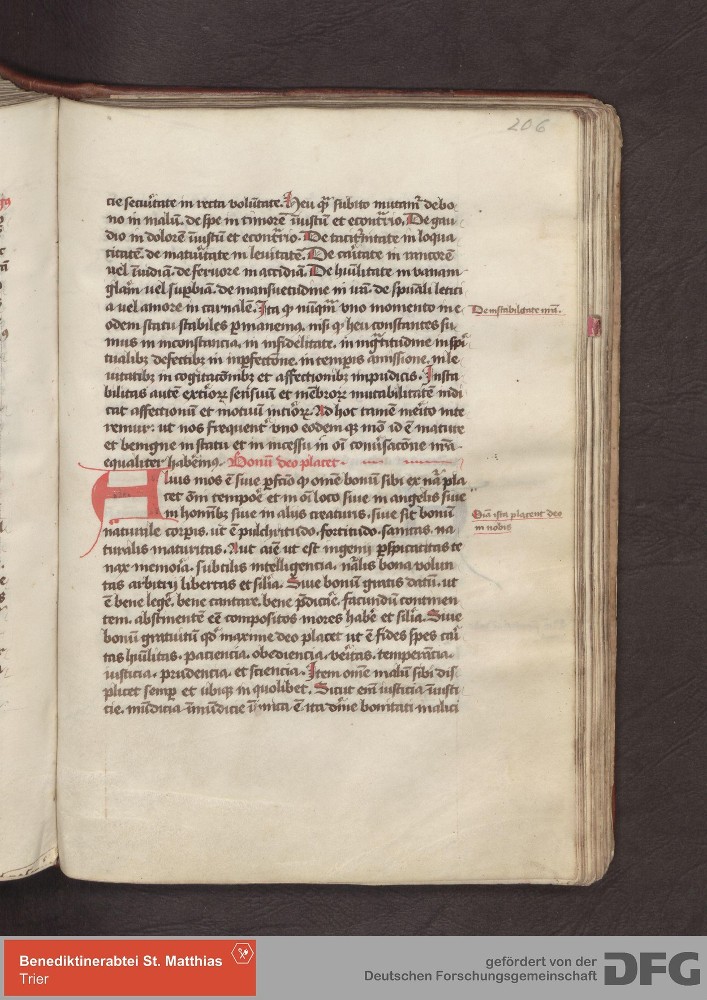 206
cie secu͛itate in recta volu͂tate. Heu q͂ subito mutam͛ de bo
no in malu͂. de spe in timore͂ i͂iustu͂ et econt͛rio. De gau
dio in dolore͂ i͂iustu͂ et econt͛rio. De tacit͛nitate in loqua
citate͂. de matu͛itate in leuitate͂. De ca͛itate in rancore͂
vel i͂uidia͂. de feruore in accidia͂. De hu͂ilitate in vanam
gl͂am vel sup͛bia͂. de mansuetudine in ira͂. de sp͂uali letici
a vel amore in carnale͂. Ita ꝙ nu͂q͂ vno momento in e
odem statu stabiles p͛manem⁹. nisi ꝙ heu constantes su
mus in inconstancia. in infidelitate. in ing͛titudine in sp͂i
tualibꝫ defectibꝫ in inp͛fectione. in temp͛is amissione. in le
vitatibꝫ in cogitac͂onibꝫ et affectionibꝫ inpudicis. Insta
bilitas aute͂ ext͛ioꝝ sensuu͂ et me͂broꝝ mutabilitate͂ indi
cat affectionu͂ et motuu͂ int͛ioꝝ. Ad hoc tame͂ me͛ito inte
remur. ut nos frequent͛ vno eodem qꝫ mo͂ id e͂ mature
et benigne in statu et in incessu in o͂i conu͛sac͂one n͂ra
equaliter habe͂m⁹. Bonu͂ deo placet.
De instabilitate n͂ri.
Alius mos e͂ siue p͛fc͂io ꝙ om͂e bonu͂ sibi ex n͂a pla
cet o͂m tempo͛e et in o͂i loco siue in angelis siue
in ho͂inibꝫ siue in alijs creaturis. siue sit bonu͂
naturale corp͛is. ut e͂ pulch͛itudo. fortitudo. sanitas. na
turalis maturitas. Aut a͂ie ut est ingenij p͛spicacitas te
nax memo͛ia. subtilis intelligencia. n͂alis bona volun
tas arbitrij libertas et sil͂ia. Siue bonu͂ gratis datu͂. ut
e͂ bene lege͛. bene cantare. bene p͂dica͛e. facundu͂ contine͂
tem. abstinente͂ e͂e compositos mores habe͛ et sil͂ia. Siue
bonu͂ gratuitu͂ qd͛ maxime deo placet ut e͂ fides spes ca͛i
tas hu͂ilitas. paciencia. obediencia. ve͛itas. temperancia.
iusticia. prudencia. et sciencia. Item om͂e malu͂ sibi dis
plicet semp͛ et ubiqꝫ in quolibet. Sicut eni͂ iusticia i͂iusti
cie. mu͂dicia i͂mu͂dicie i͂imica e͂ ita di͂ne bonitati malici
Q͂ia ista placent deo
in nobis
Benediktinerabtei St. Matthias
Trier
gefördert von der
Deutschen Forschungsgemeinschaft
DFG